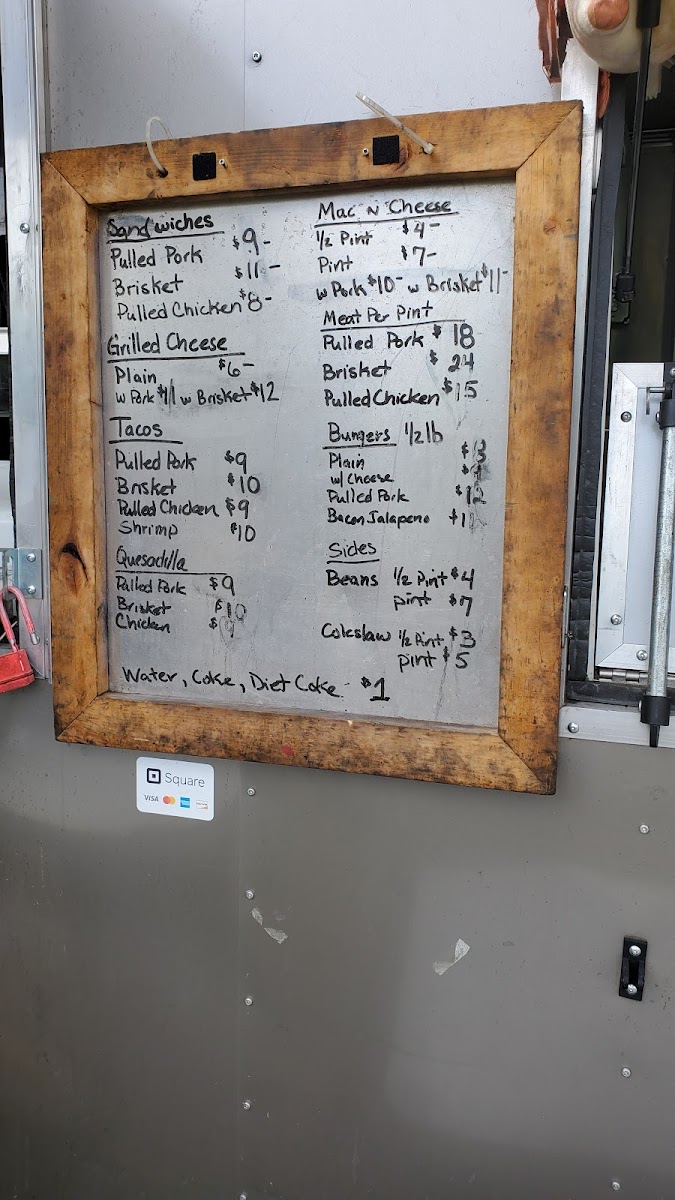 Sandwiches
Pulled Pork $9-
Brisket $11-
Pulled Chicken $8-
Grilled Cheese
Plain $6-
w Pork $11 w Brisket $12
Tacos
Pulled Pork $9
Brisket $10
Pulled Chicken $9
Shrimp $10
Quesadilla
Pulled Pork $9
Brisket $10
Chicken $9
Mac N Cheese
1/2 Pint $4-
Pint $7-
w Pork $10- w Brisket $11-
Meat Per Pint
Pulled Pork $18
Brisket $24
Pulled Chicken $15
Burgers 1/2 lb
Plain
w/ Cheese
Pulled Pork $12
Bacon Jalapeno
Sides
Beans 1/2 Pint $4
pint $7
Coleslaw 1/2 Pint $3
pint $5
Water, Coke, Diet Coke $1
Square
VISA